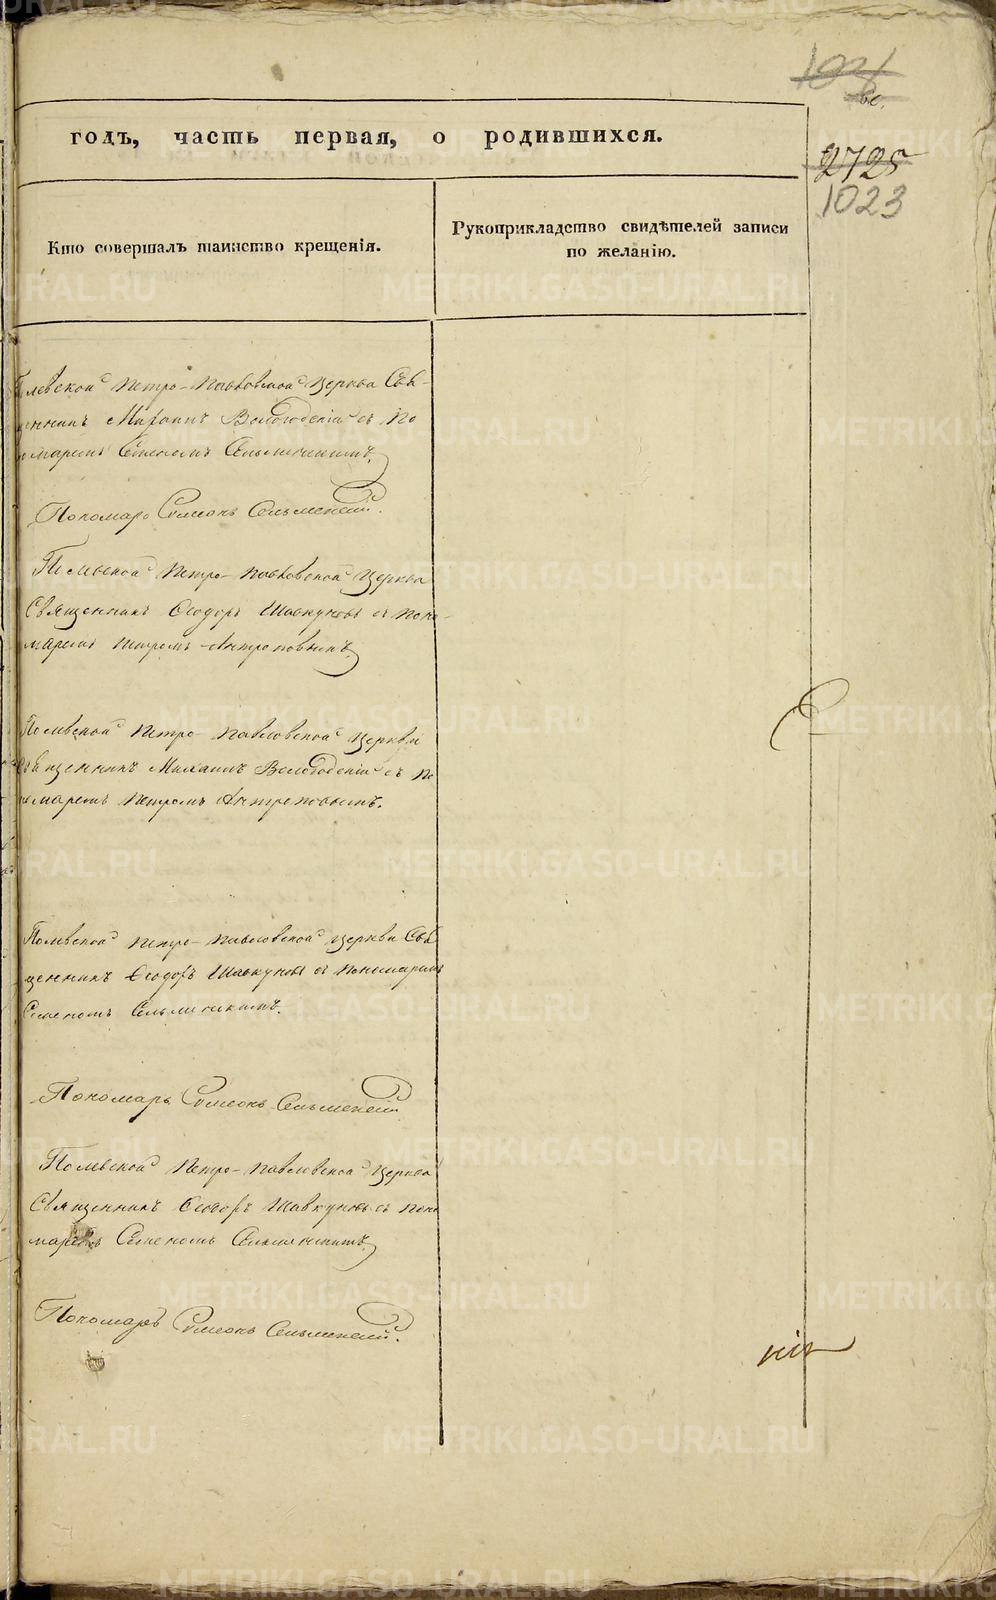 годъ, часть первая, о родившихся.
2725
1023
Кто совершалъ таинство крещенія.
Рукоприкладство свидѣтелей записи
по желанію.
Петро-Павловской Церкви Свя-
щенникъ Михаилъ Вологодскій съ По
номаремъ Семеномъ Сельменскимъ.
Пономарь Симеонъ Сельменскій.
Полевской Петро-Павловской Церкви
Священникъ Ѳеодоръ Шавкуновъ съ Поно-
маремъ Петромъ Антроповымъ.
Полевской Петро-Павловской Церкви
Священникъ Михаилъ Вологодскій съ По
номаремъ Петромъ Антроповымъ.
Полевской Петро-Павловской Церкви Свя
щенникъ Ѳеодоръ Шавкуновъ съ Пономаремъ
Семеномъ Сельменскимъ.
Пономарь Симеонъ Сельменскій.
Полевской Петро-Павловской Церкви
Священникъ Ѳеодоръ Шавкуновъ съ Поно
маремъ Семеномъ Сельменскимъ.
Пономарь Симеонъ Сельменскій.
METRIKI.GASO-URAL.RU